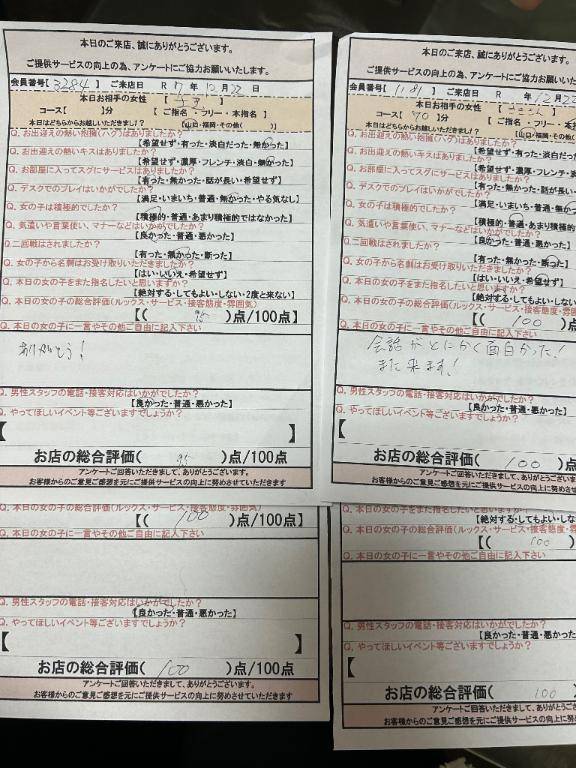 本日のご来店、誠にありがとうございます。
ご提供サービスの向上の為、アンケートにご協力お願いいたします。
会員番号【3284】 ご来店日 R 7 年 12 月 22 日
本日お相手の女性 【 】
コース【 】分 【 ご指名・フリー・本指名 】
本日はどちらからお越しいただきまし?【山口・福岡・その他( )】
Q. お出迎えの熱い抱擁(ハグ)はありましたか?
【希望せず・有った・淡白だった・無かった】
Q. お出迎えの熱いキスはありましたか?
【希望せず・濃厚・フレンチ・淡白・無かった】
Q. お部屋に入ってスグにサービスはありましたか?
【有った・無かった・話が長い・希望せず】
Q. デスクでのプレイはいかがでしたか?
【満足・いまいち・普通・無かった・やる気なし】
Q. 女の子は積極的でしたか?
【積極的・普通・あまり積極的ではなかった】
Q. 気遣いや言葉使い、マナーなどはいかがでしたか?
【良かった・普通・悪かった】
Q 二回戦はされましたか?
【有った・無かった・断った】
Q. 女の子から名刺はお受け取りいただきましたか?
【はい・いいえ・希望せず】
Q. 本日の女の子をまた指名したいと思いますか?
【絶対する・してもよい・しない・2度と来ない】
Q. 本日の女の子の総合評価(ルックス・サービス・接客態度・雰囲気)
【( 95 )点/100点】
Q. 本日の女の子に一言やその他ご自由に記入下さい
ありがとう!
Q. 男性スタッフの電話・接客対応はいかがでしたか?
【良かった・普通・悪かった】
Q. やってほしいイベント等ございますでしょうか?
【 】
お店の総合評価( 95 )点/100点
アンケートご回答いただきまして、ありがとうございます。
お客様からのご意見ご感想を元にご提供サービスの向上に努めさせていただきます
本日のご来店、誠にありがとうございます。
ご提供サービスの向上の為、アンケートにご協力お願いいたし
会員番号【1181】 ご来店日 R 年 12月 22
本日お相手の女性 【
コース【 70 】分 【 ご指名・フリー・本指名
本日はどちらからお越しいただきまし?【山口・福岡・その他(
Q. お出迎えの熱い抱擁(ハグ)はありましたか?
【希望せず・有った・淡白だっ
Q. お出迎えの熱いキスはありましたか?
【希望せず・濃厚・フレンチ・淡
Q. お部屋に入ってスグにサービスはありましたか?
【有った・無かった・話が長い
Q. デスクでのプレイはいかがでしたか?
【満足・いまいち・普通・無か
Q. 女の子は積極的でしたか?
【積極的・普通・あまり積極的
Q. 気遣いや言葉使い、マナーなどはいかがでしたか?
【良かった・普通・
Q 二回戦はされましたか?
【有った・無かった・断った】
Q. 女の子から名刺はお受け取りいただきましたか?
【はい・いいえ・希望せず】
Q. 本日の女の子をまた指名したいと思いますか?
【絶対する・してもよい・しない
Q. 本日の女の子の総合評価(ルックス・サービス・接客態度・雰
【( 100 )点/1
Q. 本日の女の子に一言やその他ご自由に記入下さい
会話がとにかく面白かった!
また来ます!
Q. 男性スタッフの電話・接客対応はいかがでしたか?
【良かった・普通・悪かっ
Q. やってほしいイベント等ございますでしょうか?
【
お店の総合評価( 100 )点/10
アンケートご回答いただきまして、ありがとうござい
お客様からのご意見ご感想を元にご提供サービスの向上に努めさせ
Q. 本日の女の子の総合評価(ルックス・サービス・接客態度・雰囲気)
【( 100 )点/100点】
Q. 本日の女の子に一言やその他ご自由に記入下さい
Q. 男性スタッフの電話・接客対応はいかがでしたか?
【良かった・普通・悪かった】
Q. やってほしいイベント等ございますでしょうか?
【 】
お店の総合評価( 100 )点/100点
アンケートご回答いただきまして、ありがとうございます。
お客様からのご意見ご感想を元にご提供サービスの向上に努めさせていただきます
Q. 本日の女の子をまた指名したいと思いますか?
【絶対する・してもよい・しな
Q. 本日の女の子の総合評価(ルックス・サービス・接客態度・
【( 100 )点/
Q. 本日の女の子に一言やその他ご自由に記入下さい
Q. 男性スタッフの電話・接客対応はいかがでしたか?
【良かった・普通・悪か
Q. やってほしいイベント等ございますでしょうか?
【
お店の総合評価( 100 )点/
アンケートご回答いただきまして、ありがとうご
お客様からのご意見ご感想を元にご提供サービスの向上に努め